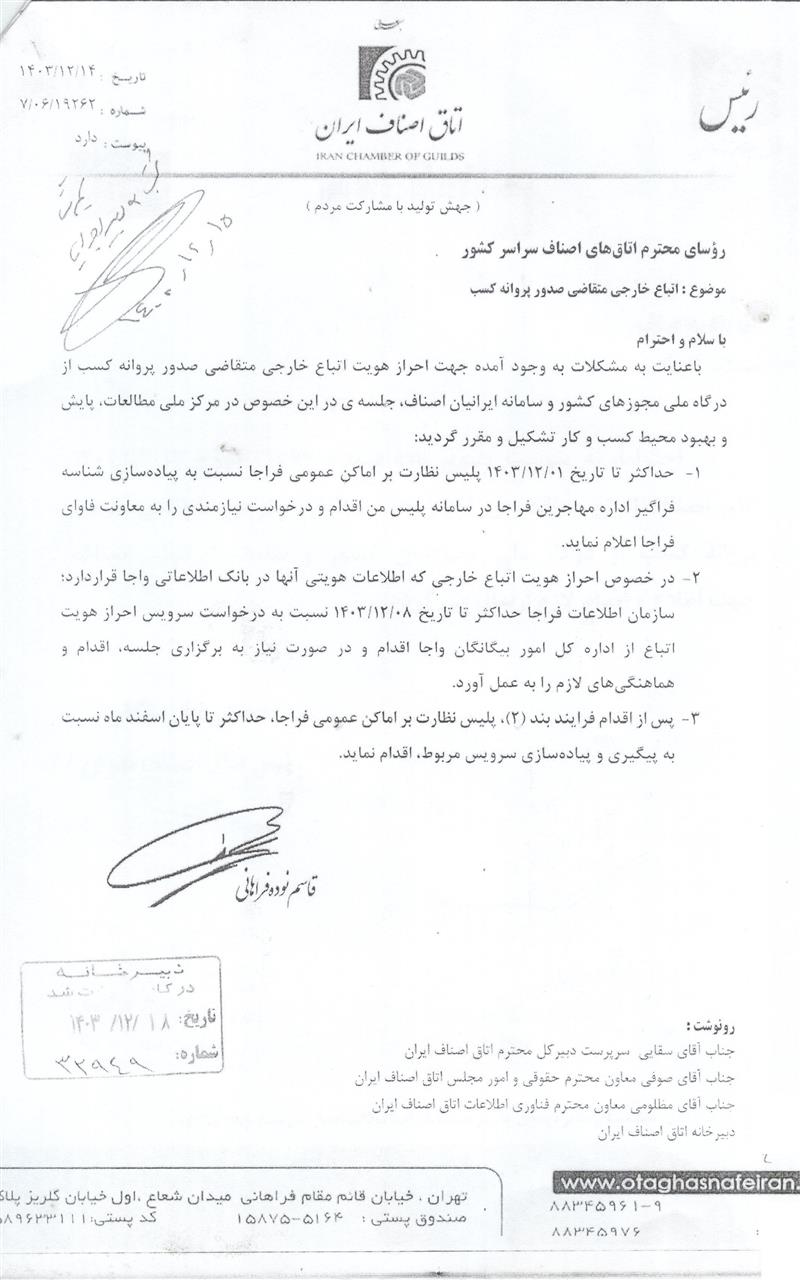 بسمه تعالی
رئیس
اتاق اصناف ایران
IRAN CHAMBER OF GUILDS
تاریخ : ۱۴۰۳/۱۲/۱۴
شماره : ۷/۰۶/۱۹۲۶۲
پیوست : دارد
( جهش تولید با مشارکت مردم )
رؤسای محترم اتاق‌های اصناف سراسر کشور
موضوع : اتباع خارجی متقاضی صدور پروانه کسب
با سلام و احترام
باعنایت به مشکلات به وجود آمده جهت احراز هویت اتباع خارجی متقاضی صدور پروانه کسب از
درگاه ملی مجوزهای کشور و سامانه ایرانیان اصناف، جلسه ی در این خصوص در مرکز ملی مطالعات، پایش
و بهبود محیط کسب و کار تشکیل و مقرر گردید:
۱- حداکثر تا تاریخ ۱۴۰۳/۱۲/۰۱ پلیس نظارت بر اماکن عمومی فراجا نسبت به پیاده‌سازی شناسه
فراگیر اداره مهاجرین فراجا در سامانه پلیس من اقدام و درخواست نیازمندی را به معاونت فاوای
فراجا اعلام نماید.
۲- در خصوص احراز هویت اتباع خارجی که اطلاعات هویتی آنها در بانک اطلاعاتی واجا قراردارد؛
سازمان اطلاعات فراجا حداکثر تا تاریخ ۱۴۰۳/۱۲/۰۸ نسبت به درخواست سرویس احراز هویت
اتباع از اداره کل امور بیگانگان واجا اقدام و در صورت نیاز به برگزاری جلسه، اقدام و
هماهنگی‌های لازم را به عمل آورد.
۳- پس از اقدام فرایند بند (۲)، پلیس نظارت بر اماکن عمومی فراجا، حداکثر تا پایان اسفند ماه نسبت
به پیگیری و پیاده‌سازی سرویس مربوط، اقدام نماید.
قاسم نوده فراهانی
دبیرخانه
تاریخ: ۱۴۰۳/۱۲/۱۸
شماره: ۳۲۹۴۹
رونوشت :
جناب آقای سقایی سرپرست دبیرکل محترم اتاق اصناف ایران
جناب آقای صوفی معاون محترم حقوقی و امور مجلس اتاق اصناف ایران
جناب آقای مظلومی معاون محترم فناوری اطلاعات اتاق اصناف ایران
دبیرخانه اتاق اصناف ایران
www.otaghasnafeiran.
۸۸۳۴۵۹۶۱-۹
۸۸۳۴۵۹۷۶
تهران ، خیابان قائم مقام فراهانی میدان شعاع ،اول خیابان گلریز پلاک
صندوق پستی : ۱۵۸۷۵-۵۱۶۴ کد پستی:۵۸۹۶۳۳۱۱۱